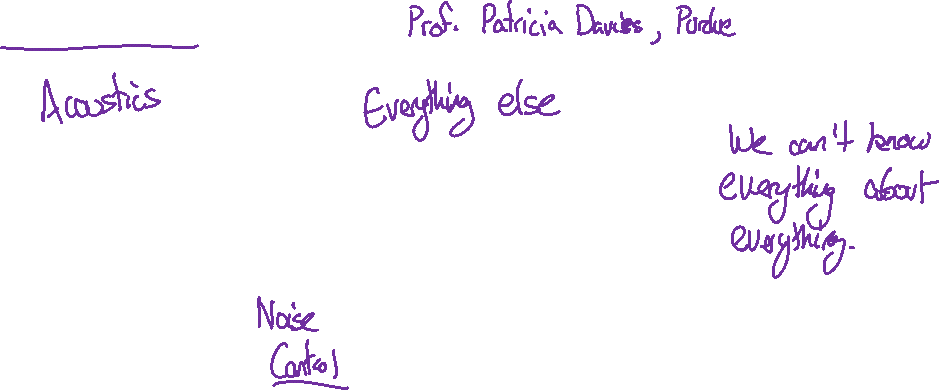 Prof. Patricia Davies, Purdue
Acoustics
Everything else
We can't know
everything about
everything.
Noise
Control